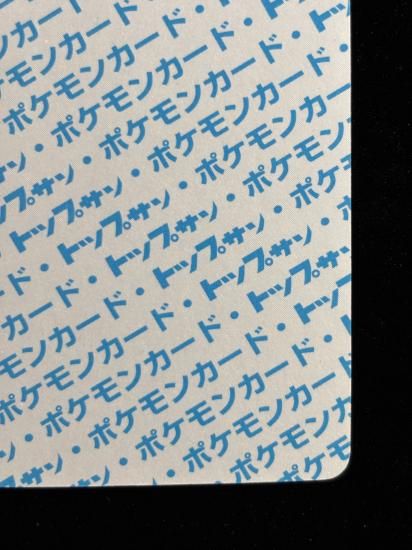 ンカード
ケモンカード・
ポケモンカード・ト
・ポケモンカード・トッ
プサン・ポケモンカード・
トップサン・ポケモンカー
ド・トップサン・ポケモン
カード・トップサン・ポ
ンカード・トップサン・
モンカード・トップサン
ポケモンカード・トッ
・ポケモンカード・
サン・ポケモンカード
・ポケモンカ
ポケ